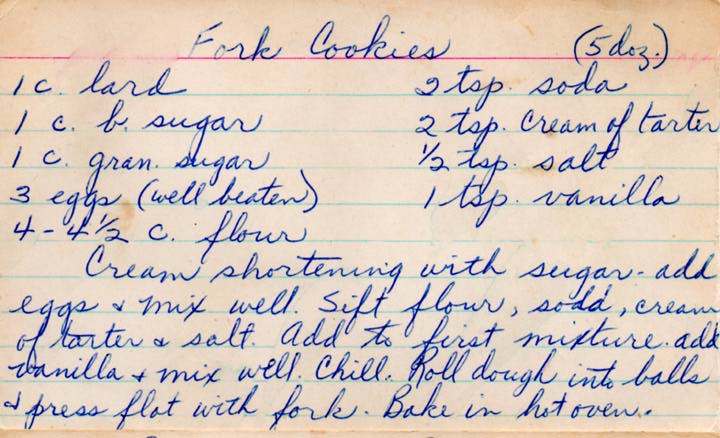 Fork Cookies (5 doz.)
1 c. lard 2 tsp. soda
1 c. b. sugar 2 tsp. Cream of tarter
1 c. gran. sugar 1/2 tsp. salt
3 eggs (well beaten) 1 tsp. vanilla
4 - 4 1/2 c. flour
Cream shortening with sugar - add
eggs & mix well. Sift flour, soda, cream
of tarter & salt. Add to first mixture. add
vanilla & mix well. Chill. Roll dough into balls
& press flat with fork. Bake in hot oven.